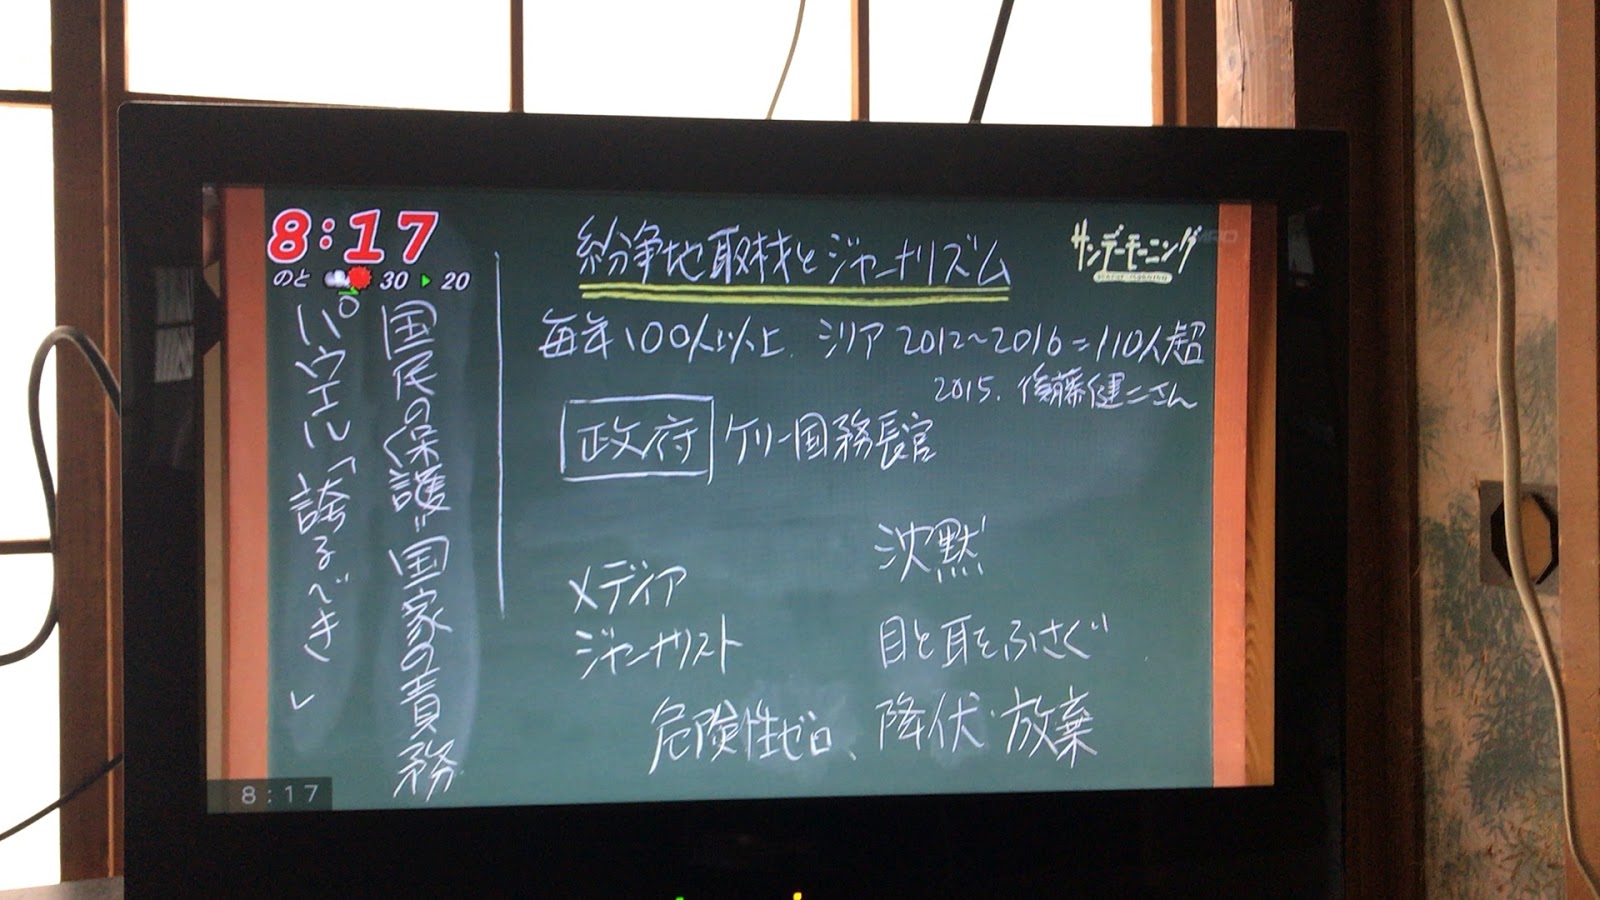 8:17
のと 30 ▶ 20
サンデーモーニング
紛争地取材とジャーナリズム
毎年100人以上. シリア 2012〜2016=110人超
2015. 後藤健二さん
政府 ケリー国務長官
沈黙
メディア
ジャーナリスト
目と耳をふさぐ
危険性ゼロ、降伏・放棄
国民の保護=国家の責務
パウエル「誇るべき」
8:17